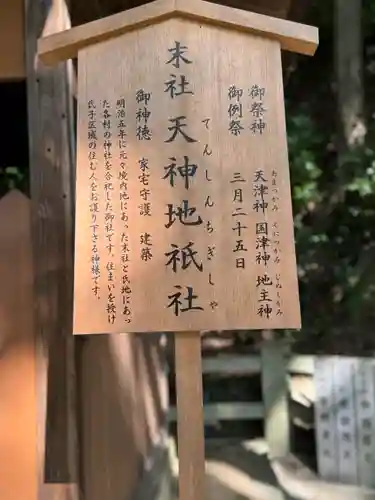 御祭神　天津神　国津神　地主神
あまつかみ　くにつかみ　じぬしかみ
御例祭　三月二十五日
末社　天神地祇社
てんしんちぎしゃ
御神徳　家宅守護　建築
明治五年に元々境内地にあった末社と氏地にあっ
た各村の神社を合祀した御社です。住まいを授け
氏子区域の住む人をお守り下さる神様です。